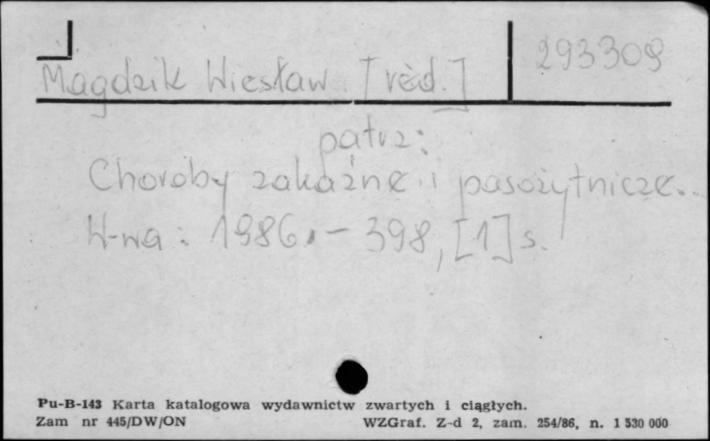 293309
Magdzik Wiesław [réd.]
patrz:
Choroby zakaźne i pasożytnicze..
W-wa: 1986.- 398, [1] s.
Pu-B-143 Karta katalogowa wydawnictw zwartych i ciągłych.
Zam nr 445/DW/ON WZGraf. Z-d 2, zam. 254/86, n. 1 530 000